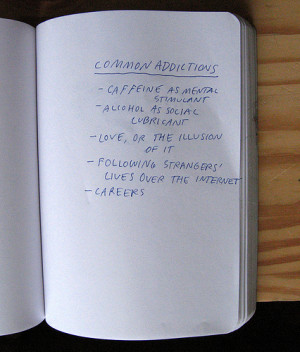 COMMON ADDICTIONS
- CAFFEINE AS MENTAL
STIMULANT
- ALCOHOL AS SOCIAL
LUBRICANT
- LOVE, OR THE ILLUSION
OF IT
- FOLLOWING STRANGERS'
LIVES OVER THE INTERNET
- CAREERS